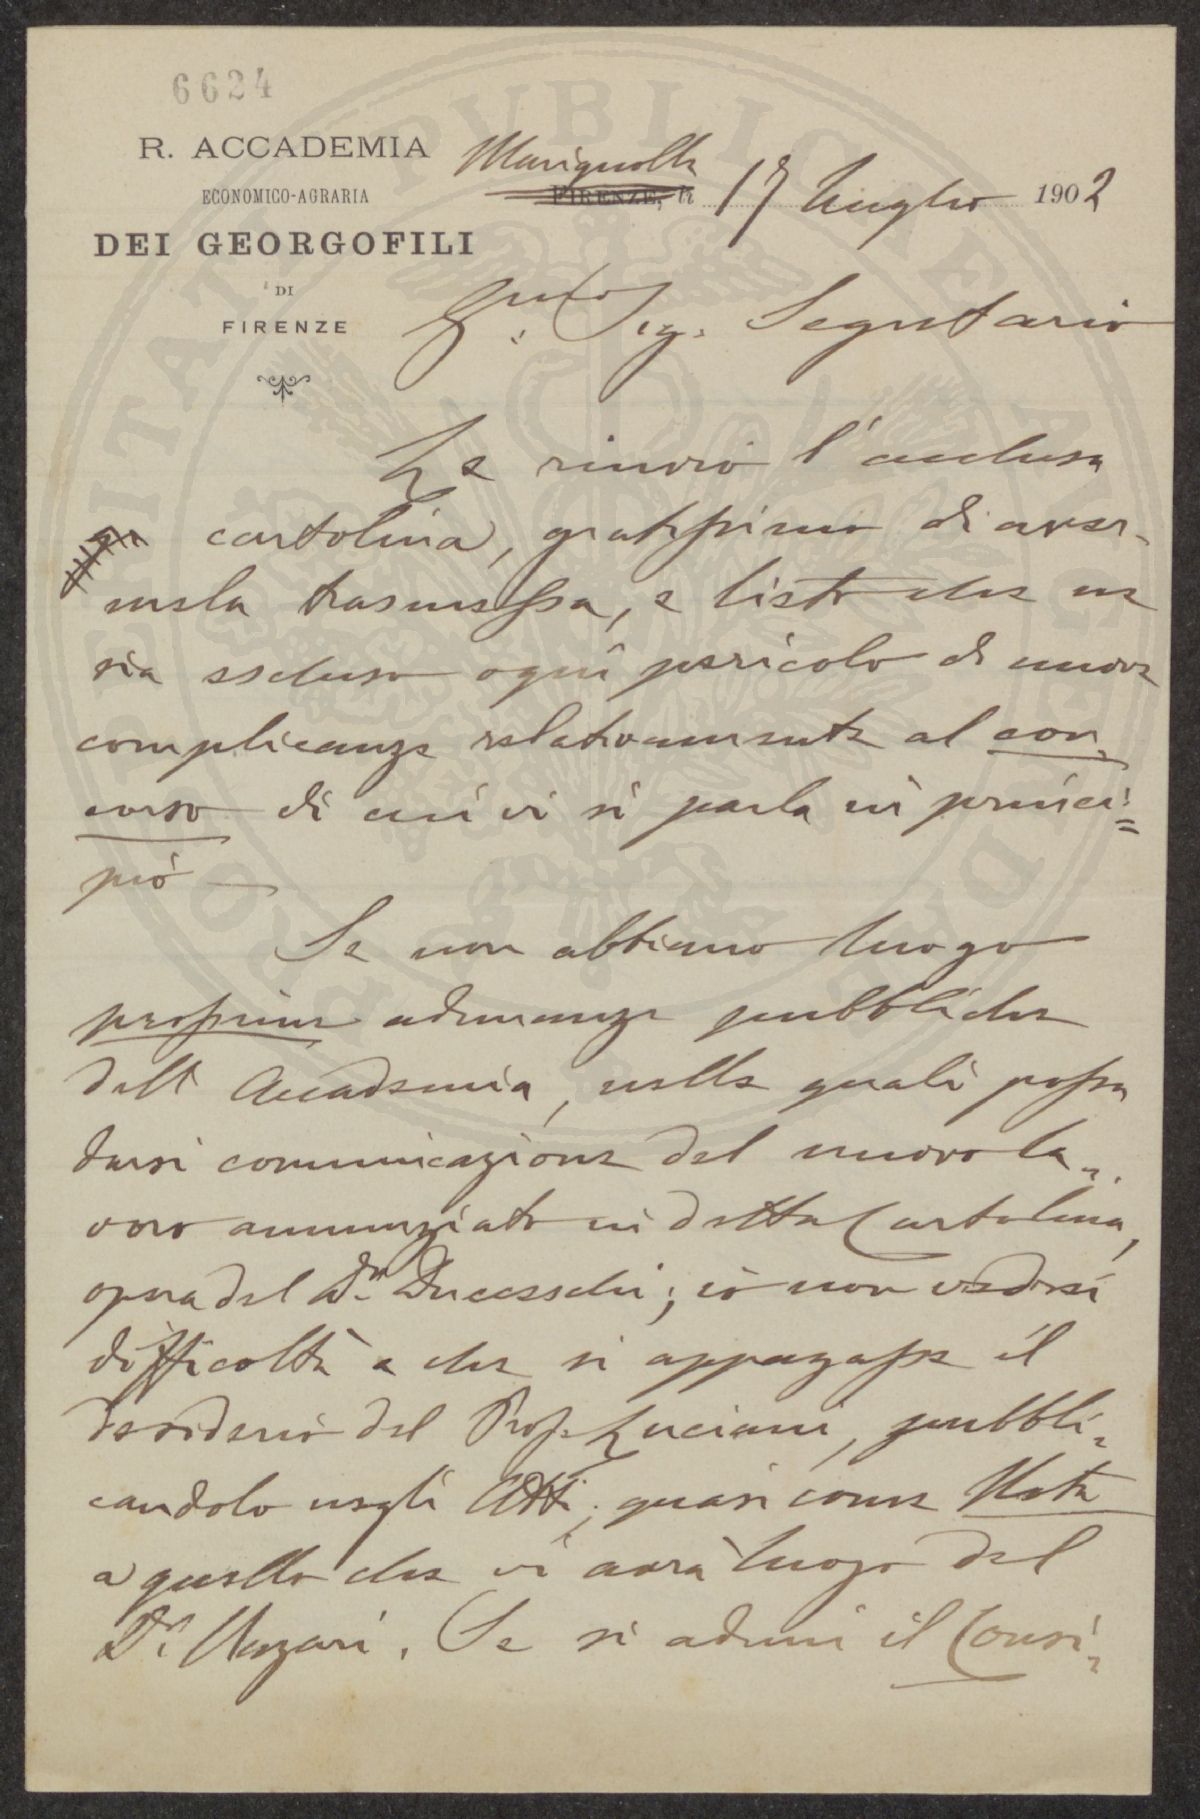 6624
R. ACCADEMIA
ECONOMICO-AGRARIA
DEI GEORGOFILI
DI
FIRENZE
Marignolle
FIRENZE, li 17 luglio 1902
Sig. Segretario
Le rinvio l'acclusa
cartolina, gratissimo di aver-
mela trasmessa, e lieto che ne
sia escluso ogni pericolo di nuove
complicanze relativamente al con-
corso di cui vi si parla in princi=
pio —
Se non abbiamo luogo
prossime adunanze pubbliche
dell'Accademia, nelle quali possa
darsi comunicazione del nuovo la-
voro annunziato in detta Cartolina,
opera del Dr. Ducceschi; io non vedrei
difficoltà a che si appagasse il
desiderio del Prof. Luciani, pubbli=
candolo negli Atti, quasi come Nota
a quello che vi avrà luogo del
Dr. Nazari. Se si aduni il Consi=
PUBLICAE